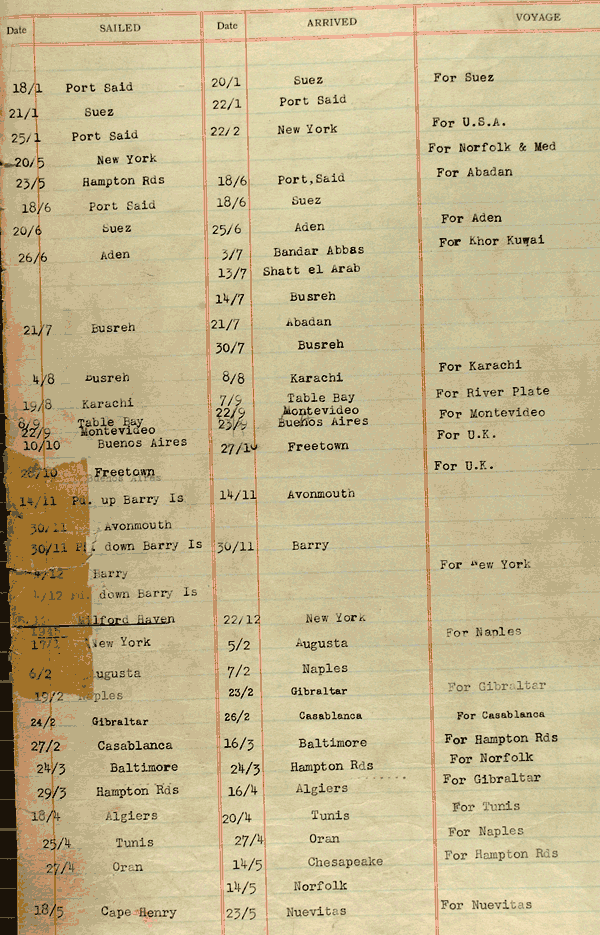 Date SAILED Date ARRIVED VOYAGE
18/1 Port Said 20/1 Suez For Suez
21/1 Suez 22/1 Port Said
25/1 Port Said 22/2 New York For U.S.A.
20/5 New York For Norfolk & Med
23/5 Hampton Rds 18/6 Port,Said For Abadan
18/6 Port Said 18/6 Suez
20/6 Suez 25/6 Aden For Aden
26/6 Aden 3/7 Bandar Abbas For Khor Kuwai
13/7 Shatt el Arab
14/7 Busreh
21/7 Busreh 21/7 Abadan
30/7 Busreh
4/8 Busreh 8/8 Karachi For Karachi
19/8 Karachi 7/9 Table Bay For River Plate
8/9 Table Bay 22/9 Montevideo For Montevideo
22/9 Montevideo 23/9 Buenos Aires
10/10 Buenos Aires 27/10 Freetown For U.K.
28/10 Freetown For U.K.
Buenos Aires
14/11 Pd. up Barry Is 14/11 Avonmouth
30/11 Avonmouth
30/11 Pd. down Barry Is 30/11 Barry
4/12 Barry For New York
4/12 Pd. down Barry Is
Milford Haven 22/12 New York
1945 For Naples
17/1 New York 5/2 Augusta
6/2 Augusta 7/2 Naples
19/2 Naples 23/2 Gibraltar For Gibraltar
24/2 Gibraltar 26/2 Casablanca For Casablanca
27/2 Casablanca 16/3 Baltimore For Hampton Rds
24/3 Baltimore 24/3 Hampton Rds For Norfolk
29/3 Hampton Rds 16/4 Algiers For Gibraltar
18/4 Algiers 20/4 Tunis For Tunis
25/4 Tunis 27/4 Oran For Naples
27/4 Oran 14/5 Chesapeake For Hampton Rds
14/5 Norfolk
18/5 Cape Henry 23/5 Nuevitas For Nuevitas